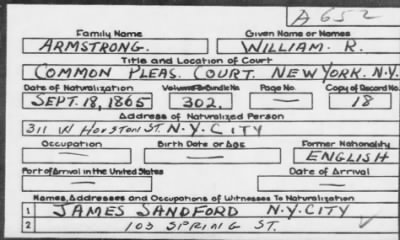 A652
Family Name Given Name or Names
ARMSTRONG. WILLIAM. R.
Title and Location of Court
COMMON PLEAS. COURT. NEW YORK. N.Y.
Date of Naturalization Volume or Bundle No. Page No. Copy of Record No.
SEPT. 18, 1865 302. — 18
Address of Naturalized Person
311 W HOUSTON ST. N.Y. CITY
Occupation Birth Date or Age Former Nationality
— — ENGLISH
Port of Arrival in the United States Date of Arrival
— —
Names, Addresses and Occupations of Witnesses To Naturalization
1 JAMES SANDFORD N.Y. CITY
2 103 SPRING ST.